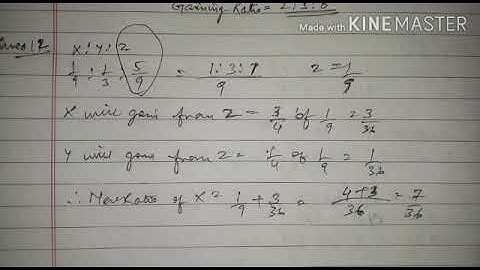 Gaining Ratio = 2:3:0
Made with KINEMASTER
Ques 12
X:Y:Z
1/9 : 1/3 : 5/9 = 1:3:7/9 Z = 1/9
X will gain from Z = 3/4 of 1/9 = 3/36
Y will gain from Z = 1/4 of 1/9 = 1/36
∴ New Ratio of X = 1/9 + 3/36 = 4+3/36 = 7/36